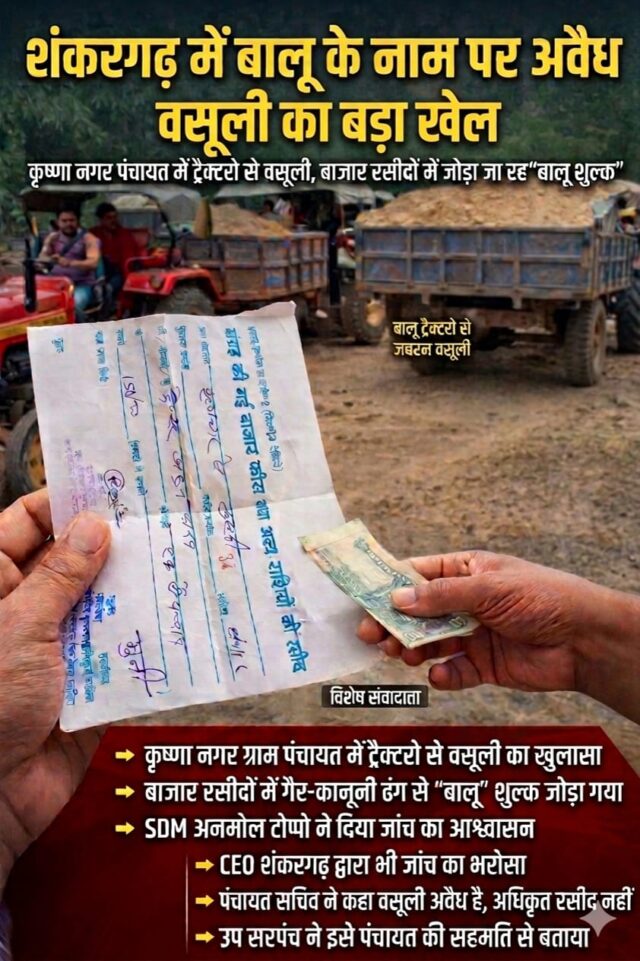 शंकरगढ़ में बालू के नाम पर अवैध
वसूली का बड़ा खेल
कृष्णा नगर पंचायत में ट्रैक्टरो से वसूली, बाजार रसीदों में जोड़ा जा रह“बालू शुल्क”
बालू ट्रैक्टरो से
जबरन वसूली
की गई बाजार फीस तथा अन्य राशियों की रसीद
विशेष संवादाता
→ कृष्णा नगर ग्राम पंचायत में ट्रैक्टरो से वसूली का खुलासा
→ बाजार रसीदों में गैर-कानूनी ढंग से “बालू” शुल्क जोड़ा गया
→ SDM अनमोल टोप्पो ने दिया जांच का आश्वासन
→ CEO शंकरगढ़ द्वारा भी जांच का भरोसा
→ पंचायत सचिव ने कहा वसूली अवैध है, अधिकृत रसीद नहीं
→ उप सरपंच ने इसे पंचायत की सहमति से बताया